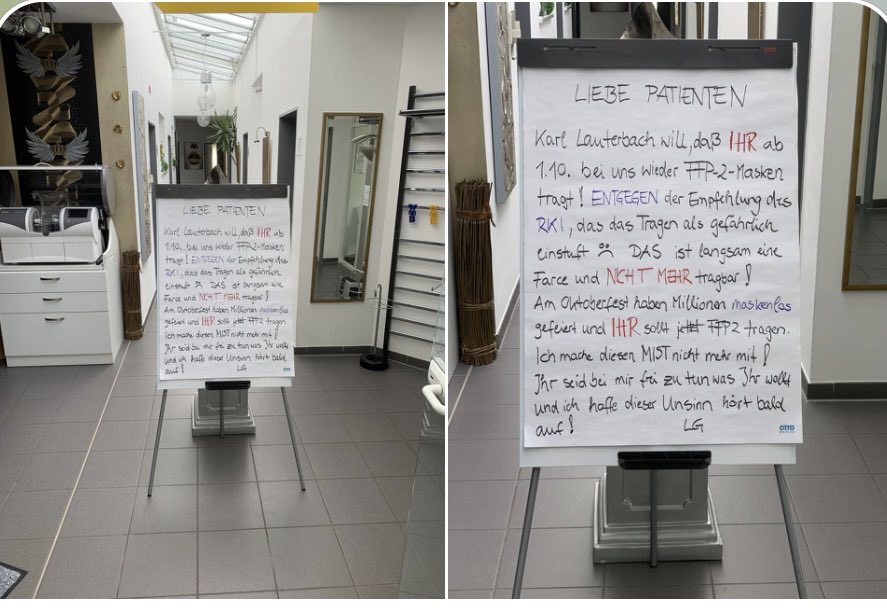 LIEBE PATIENTEN
Karl Lauterbach will, daß IHR ab
1.10. bei uns wieder FFP-2-Masken
tragt! ENTGEGEN der Empfehlung des
RKI, das das Tragen als gefährlich
einstuft ☹ DAS ist langsam eine
Farce und NICHT MEHR tragbar!
Am Oktoberfest haben Millionen maskenlos
gefeiert und IHR sollt jetzt FFP2 tragen.
Ich mache diesen MIST nicht mehr mit!
Ihr seid bei mir frei zu tun was Ihr wollt
und ich hoffe dieser Unsinn hört bald
auf! LG
LIEBE PATIENTEN
Karl Lauterbach will, daß IHR ab
1.10. bei uns wieder FFP-2-Masken
tragt! ENTGEGEN der Empfehlung des
RKI, das das Tragen als gefährlich
einstuft ☹ DAS ist langsam eine
Farce und NICHT MEHR tragbar!
Am Oktoberfest haben Millionen maskenlos
gefeiert und IHR sollt jetzt FFP2 tragen.
Ich mache diesen MIST nicht mehr mit!
Ihr seid bei mir frei zu tun was Ihr wollt
und ich hoffe dieser Unsinn hört bald
auf! LG
OTTO
OFFICE